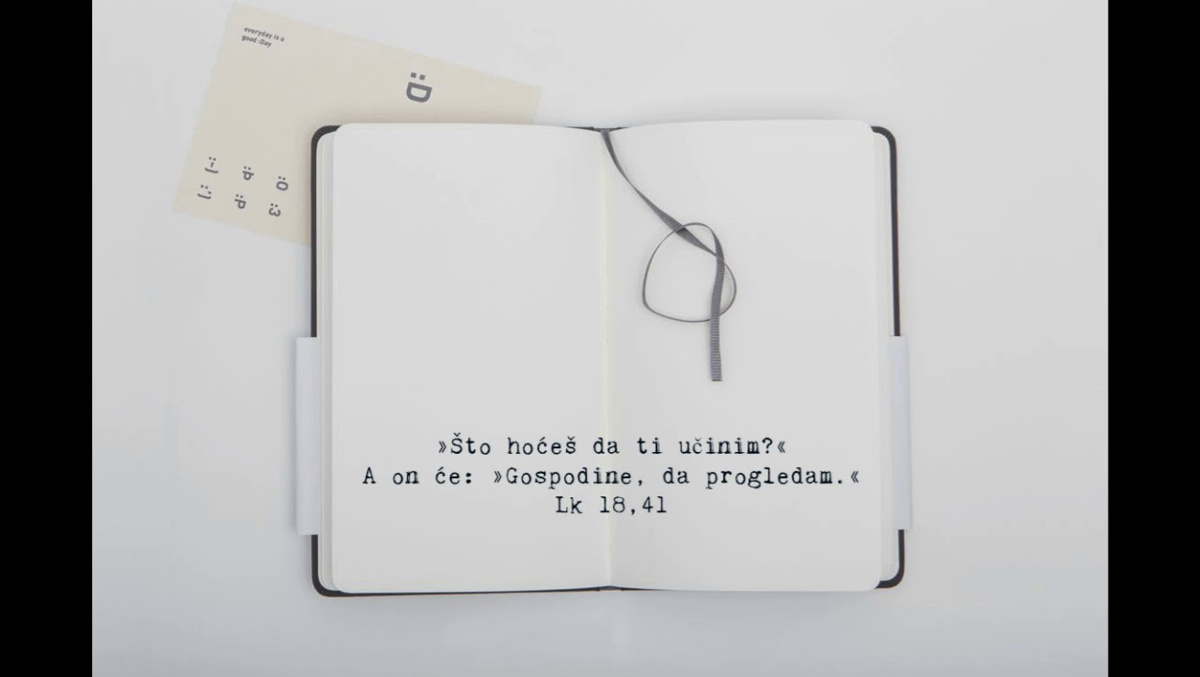 everyday is a
good :Day
:D
:-) :b :O
:') :P :3
»Što hoćeš da ti učinim?«
A on će: »Gospodine, da progledam.«
Lk 18,41